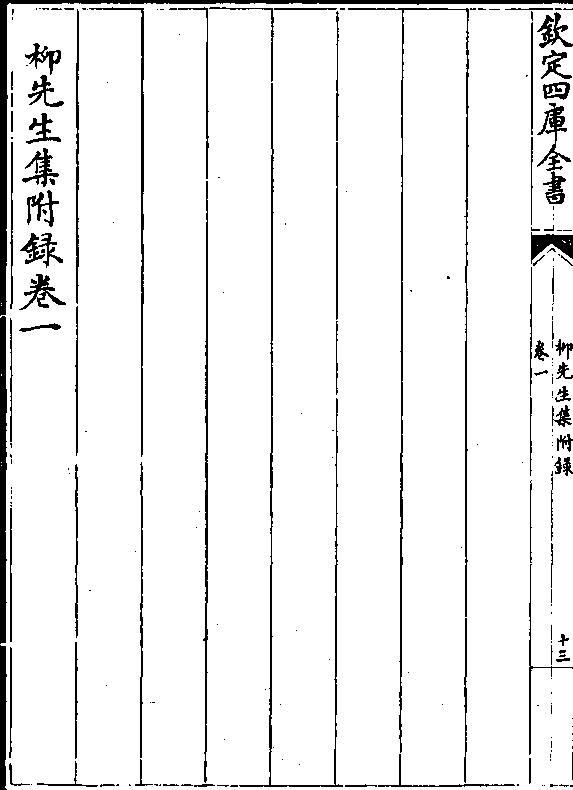 欽定四庫全書
柳先生集附錄
卷一
十三
柳先生集附録卷一